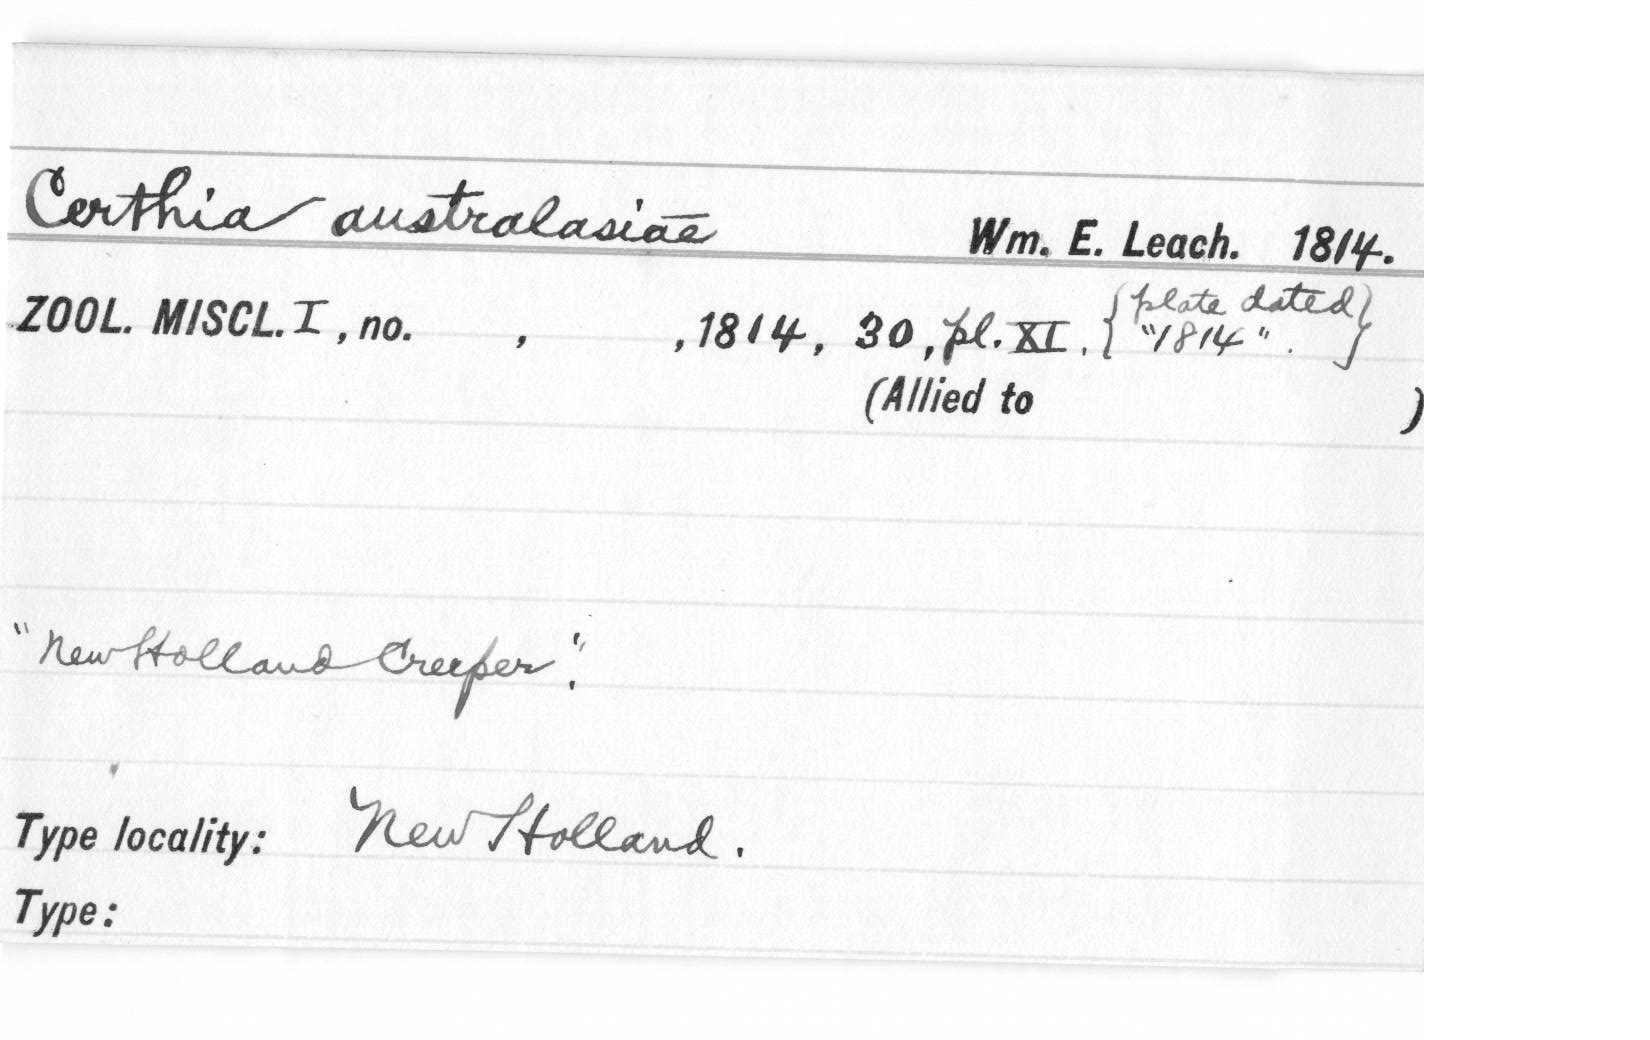 Certhia australasiae Wm. E. Leach. 1814.
ZOOL. MISCL. I, no. , , 1814, 30, pl. XI. {plate dated
"1814".}
(Allied to )
"New Holland Creeper".
Type locality: New Holland.
Type: